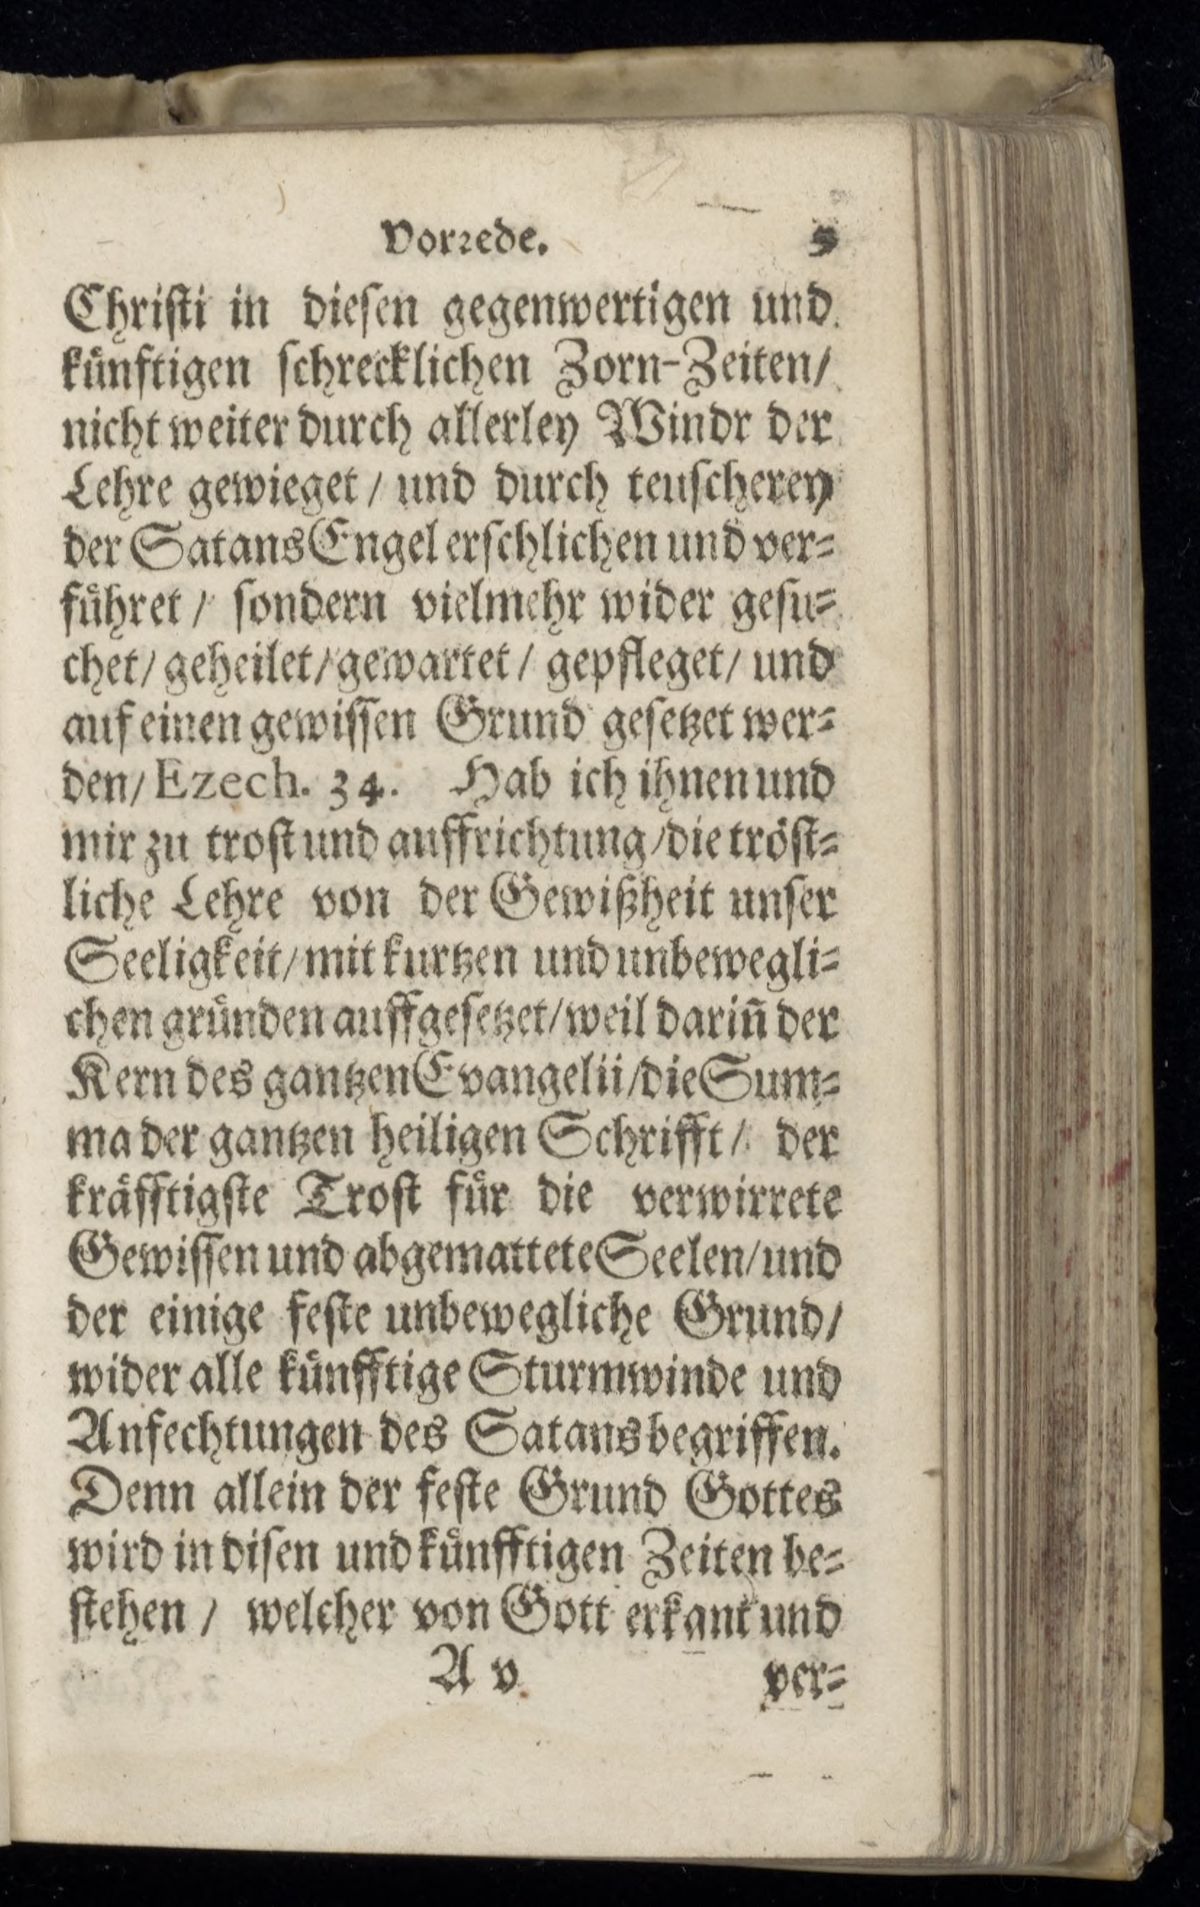 Vorrede. 9
Christi in diesen gegenwertigen und
künftigen schrecklichen Zorn-Zeiten/
nicht weiter durch allerley Windr der
Lehre gewieget / und durch teuscherey
der Satans Engel erschlichen und ver-
führet / sondern vielmehr wider gesu-
chet / geheilet / gewartet / gepfleget / und
auf einen gewissen Grund gesetzet wer-
den / Ezech. 34. Hab ich ihnen und
mir zu trost und auffrichtung / die tröst-
liche Lehre von der Gewißheit unser
Seeligkeit / mit kurtzen und unbewegli-
chen gründen auffgesetzet / weil dariñ der
Kern des gantzen Evangelii / die Sum-
ma der gantzen heiligen Schrifft / der
kräfftigste Trost für die verwirrete
Gewissen und abgemattete Seelen / und
der einige feste unbewegliche Grund /
wider alle künfftige Sturmwinde und
Anfechtungen des Satans begriffen.
Denn allein der feste Grund Gottes
wird in disen und künfftigen Zeiten be-
stehen / welcher von Gott erkant und
A v ver-